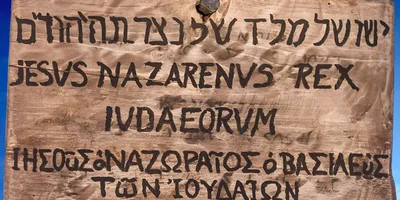 ישו של מלד של נצרת היהודים
JESUS NAZARENVS REX
IVDAEORVM
ΙΗΣοῦς ὁ ΝΑΖΩΡΑῖΟΣ ὁ ΒΑΣΙΛΕῦς
ΤῶΝ ἸΟΥΔΑΙΩΝ